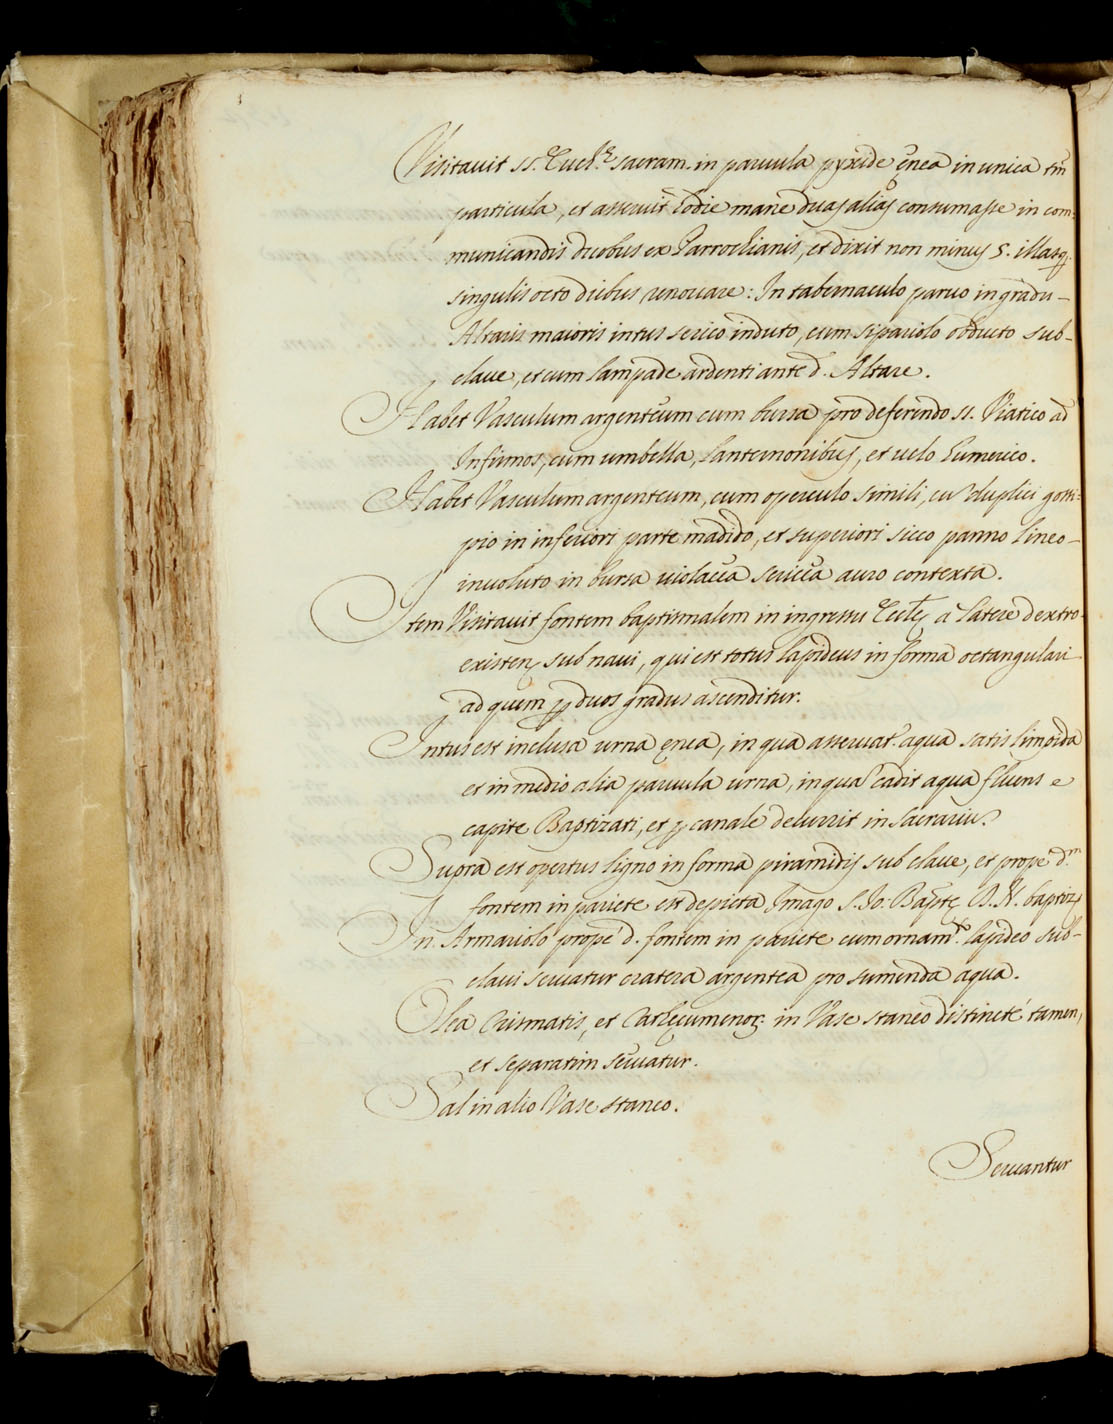 Visitavit SS. Euch.æ sacram. in parvula pyxide ęnea in unica tm̃
particula, et asseruit hodie mane duas alias consumasse in com=
municandis duobus ex Parrochianis, et dixit non minus 5. illasq.
singulis octo diebus renovare: In tabernaculo parvo in gradu-
Altaris maioris intus serico induto, cum sipariolo obducto sub-
clave, et cum lampade ardenti ante d. Altare.
Habet Vasculum argenteum cum bursa pro deferendo SS. Viatico ad
Infirmos, cum umbella, Lanternonibus, et velo humerico.
Habet Vasculum argenteum, cum operculo simili, cu duplici gossi=
pio in inferiori parte madido, et superiori sicco panno lineo-
involuto in bursa violacea sericea auro contexta.
Item Visitavit fontem baptismalem in ingressu Eccl.ę a latere dextro-
existen. sub navi, qui est totus lapideus in forma octangulari
ad quem p duos gradus ascenditur.
Intus est inclusa urna ęnea, in qua asservat.r aqua satis limpida
et in medio alia parvula urna, in qua cadit aqua fluens e
capite Baptizati, et p canale decurrit in Sacrariu.
Supra est opertus ligno in forma piramidis sub clave, et prope d.m
fontem in pariete est depicta Imago S. Jo: Baptę D. N. baptiz.
In Armariolo prope d. fontem in pariete cum ornam.to lapideo sub-
clavi servatur cratera argentea pro sumenda aqua.
Olea Crismatis, et Cathecumenor. in Vase staneo distincté tamen,
et separatim servatur.
Sal in alio Vase staneo.
Servantur